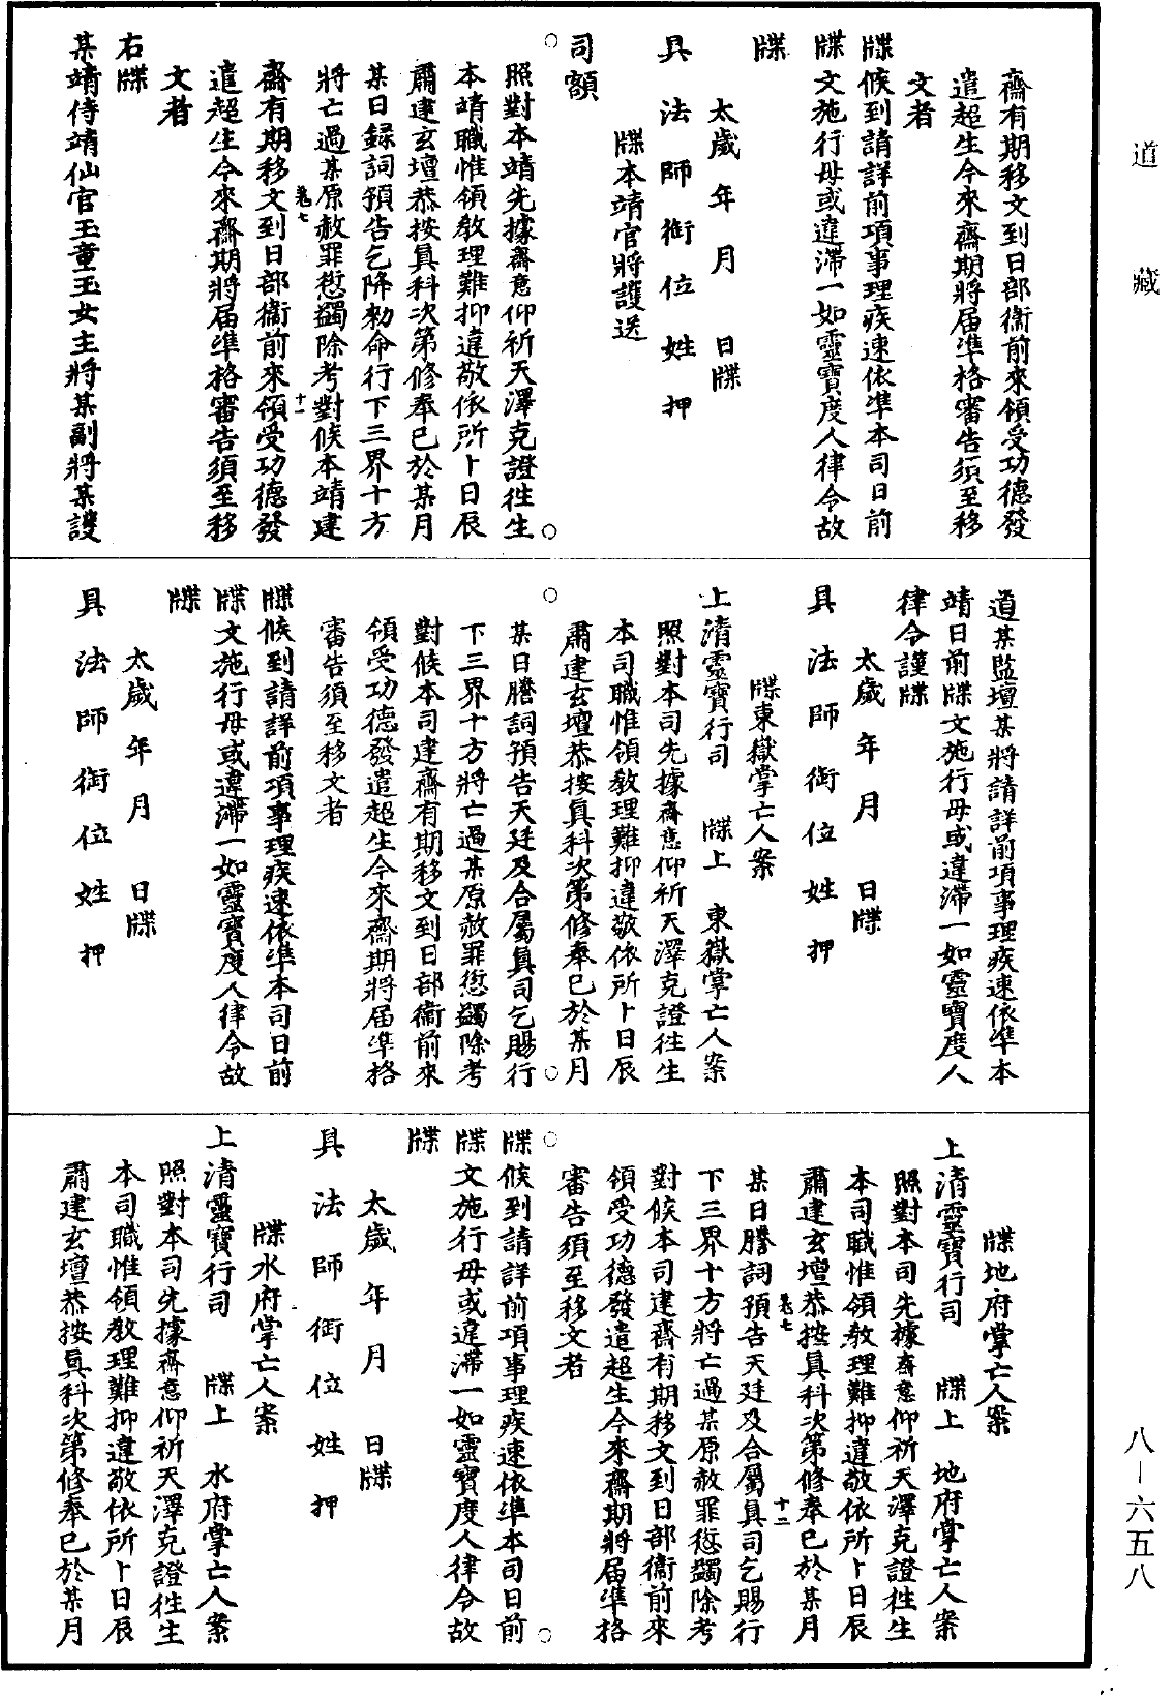 道藏
齋有期移文到日部衞前來領受功德發
遣超生今來齋期將届準格審告須至移
文者
牒候到請詳前項事理疾速依準本司日前
牒文施行毋或違滯一如靈寶度人律令故
牒
太歲 年 月 日牒
具法師銜位姓押
牒本靖官將護送
司額
照對本靖先據齋意仰祈天澤克證徃生
本靖職惟領教理難抑違敬依所卜日辰
肅建玄壇恭按眞科次第修奉已於某月
某日録詞預告乞降勑命行下三界十方
將亡過某原赦罪愆蠲除考對候本靖建
卷七 十一
齋有期移文到日部衞前來領受功德發
遣超生今來齋期將届準格審告須至移
文者
右牒
某靖侍靖仙官玉童玉女主將某副將某護
道某監壇某將請詳前項事理疾速依準本
靖日前牒文施行毋或違滯一如靈寶度人
律令謹牒
太歲 年 月 日牒
具法師銜位姓押
牒東嶽掌亡人案
上清靈寶行司 牒上 東嶽掌亡人案
照對本司先據齋意仰祈天澤克證徃生
本司職惟領教理難抑違敬依所卜日辰
肅建玄壇恭按眞科次第修奉已於某月
某日謄詞預告天廷及合屬眞司乞賜行
下三界十方將亡過某原赦罪愆蠲除考
對候本司建齋有期移文到日部衞前來
領受功德發遣超生今來齋期將届準格
審告須至移文者
牒候到請詳前項事理疾速依準本司日前
牒文施行毋或違滯一如靈寶度人律令故
牒
太歲 年 月 日牒
具法師銜位姓押
牒地府掌亡人案
上清靈寶行司 牒上 地府掌亡人案
照對本司先據齋意仰祈天澤克證徃生
本司職惟領教理難抑違敬依所卜日辰
肅建玄壇恭按眞科次第修奉已於某月
卷七 十二
某日謄詞預告天廷及合屬眞司乞賜行
下三界十方將亡過某原赦罪愆蠲除考
對候本司建齋有期移文到日部衞前來
領受功德發遣超生今來齋期將届準格
審告須至移文者
牒候到請詳前項事理疾速依準本司日前
牒文施行毋或違滯一如靈寶度人律令故
牒
太歲 年 月 日牒
具法師銜位姓押
牒水府掌亡人案
上清靈寶行司 牒上 水府掌亡人案
照對本司先據齋意仰祈天澤克證徃生
本司職惟領教理難抑違敬依所卜日辰
肅建玄壇恭按眞科次第修奉已於某月
八—六五八